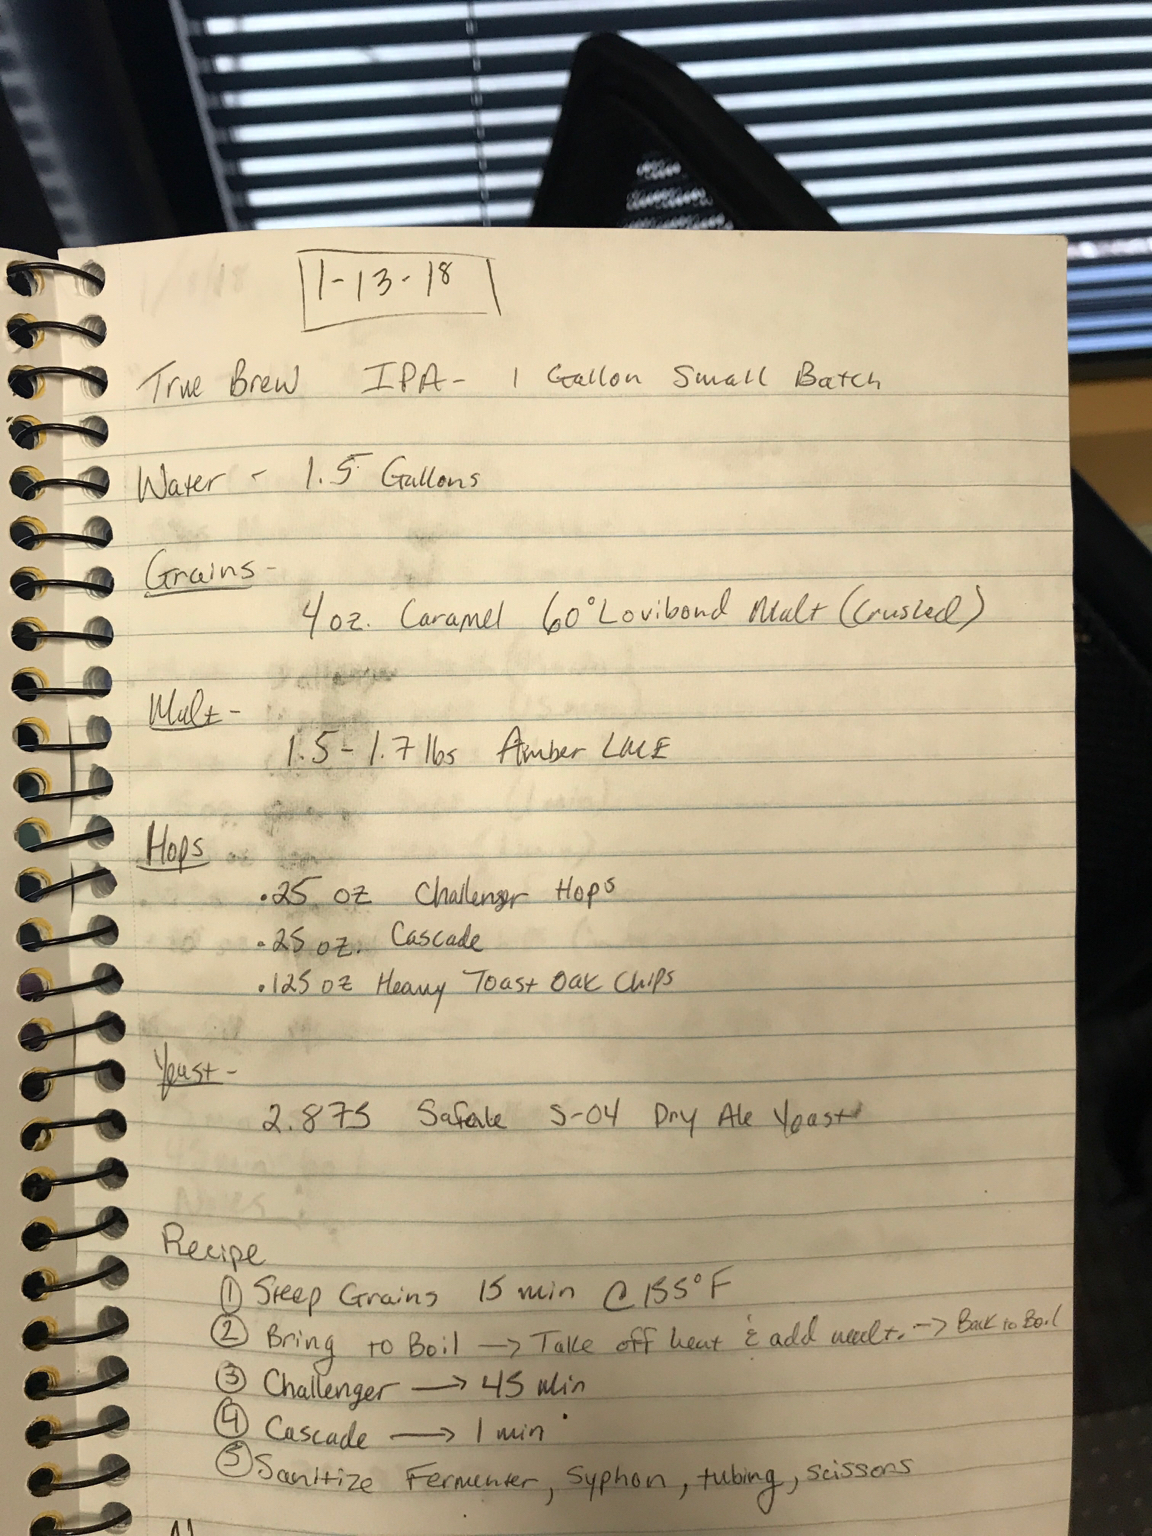 1-13-18
True Brew IPA- 1 Gallon Small Batch
Water - 1.5 Gallons
Grains-
4 oz. Caramel 60° Lovibond Malt (Crushed)
Malt-
1.5-1.7 lbs Amber LME
Hops
.25 oz Challenger Hops
.25 oz. Cascade
.125 oz Heavy Toast Oak Chips
Yeast-
2.875 Safale S-04 Dry Ale Yeast
Recipe
① Steep Grains 15 min @ 155°F
② Bring to Boil → Take off heat & add malt. --> Back to Boil
③ Challenger → 45 min
④ Cascade → 1 min
⑤ Sanitize Fermenter, Syphon, tubing, scissors